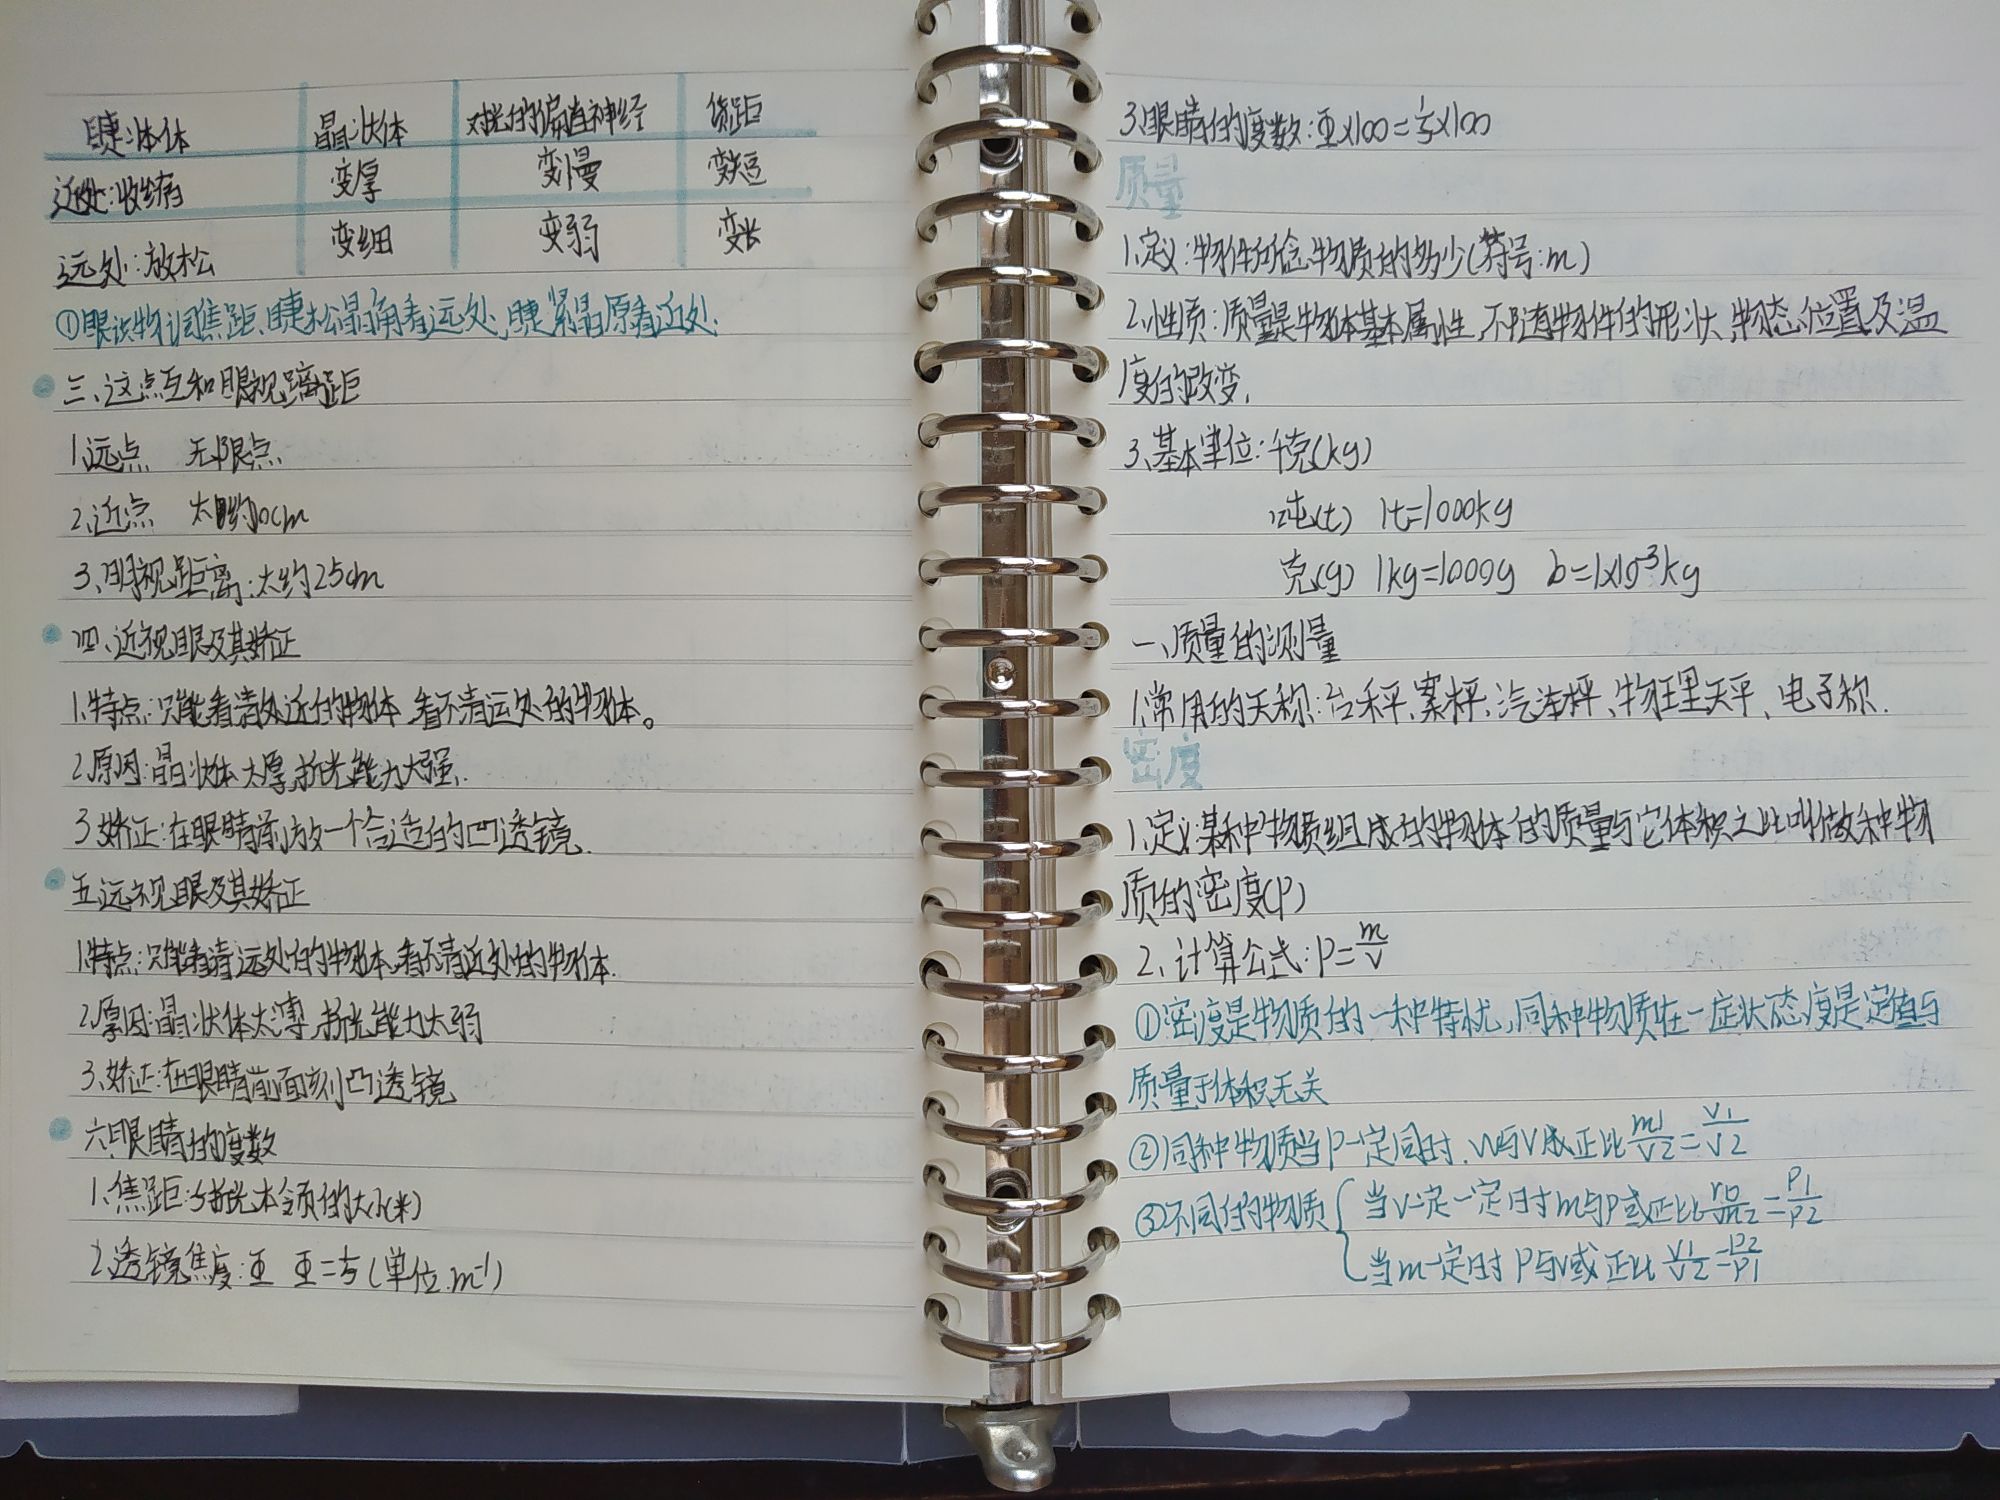 睫状体 晶状体 对光的偏直神经 焦距
近处:收缩 变厚 变慢 变短
远处:放松 变细 变弱 变长
①眼读物调焦距、睫松晶角看远处,睫紧晶厚看近处.
三、这点互和眼视离距
1.远点 无限点
2.近点 大约10cm
3、明视距离:大约25cm
四、近视眼及其矫正
1.特点:只能看清处近的物体,看不清远处的物体。
2.原因:晶状体太厚,折光能力太强.
3矫正:在眼睛前放一个合适的凹透镜.
五远视眼及其矫正
1.特点:只能看清远处的物体,看不清近处的物体.
2.原因:晶状体太薄,折光能力太弱
3、矫正:在眼睛前面刻凸透镜
六眼睛的度数
1、焦距: 折光本领的大小(米)
2.透镜焦度:亚 亚=1/f(单位.m⁻¹)
3.眼睛的度数:亚×100=1/f×100
质量
1.定义:物体所含物质的多少(符号:m)
2.性质:质量是物体基本属性,不随物体的形状、物态、位置及温
度的改变.
3、基本单位:千克(kg)
吨(t) 1t=1000kg
克(g) 1kg=1000g b=1×10⁻³kg
一、质量的测量
1.常用的天称:台秤、案秤、汽车秤、物理天平、电子称.
密度
1.定义:某种物质组成的物体的质量与它体积之比叫做种物
质的密度(P)
2、计算公式:P=m/v
①密度是物质的一种特忧,同种物质在一症状态度是定值与
质量于体积无关
②同种物质当P一定同时.m与V成正比 m1/v2=v1/v2
③不同的物质 当V定一定时m与P或正比 /m2=P1/P2
当m一定时P与v或正比 v1/v2=P2/P1